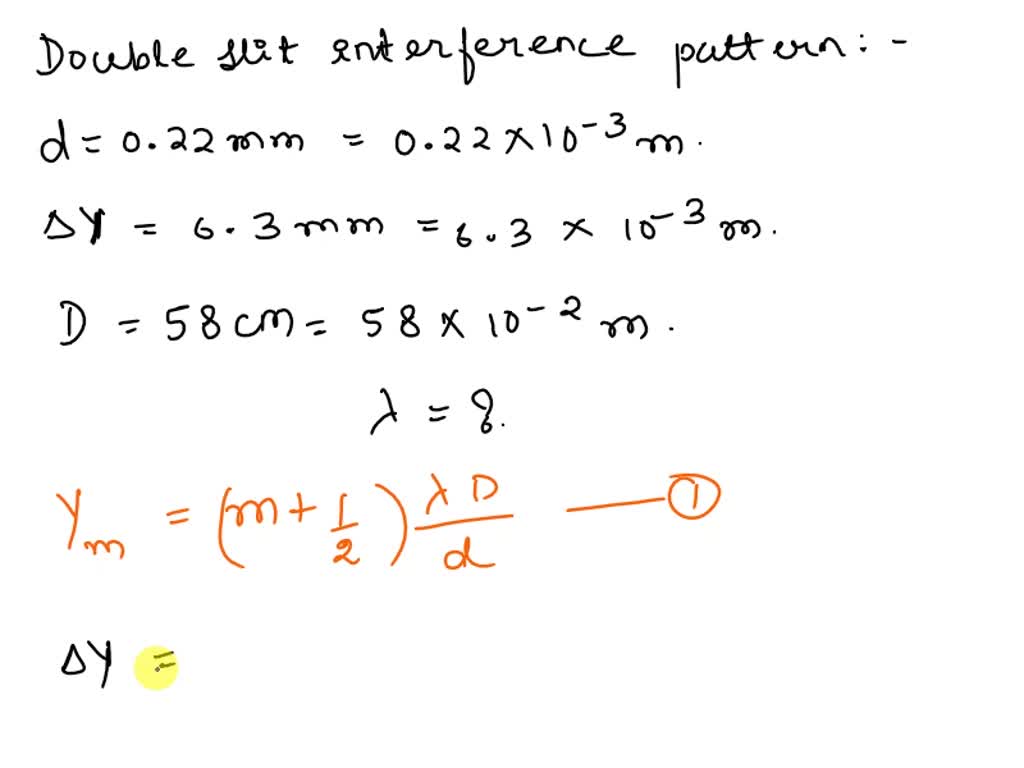 Double slit interference pattern:-
d = 0.22 mm = 0.22 × 10⁻³ m.
ΔY = 6.3 mm = 6.3 × 10⁻³ m.
D = 58 cm = 58 × 10⁻² m.
λ = ?.
Yₘ = (m + 1/2) λD/d —— ①
ΔY =